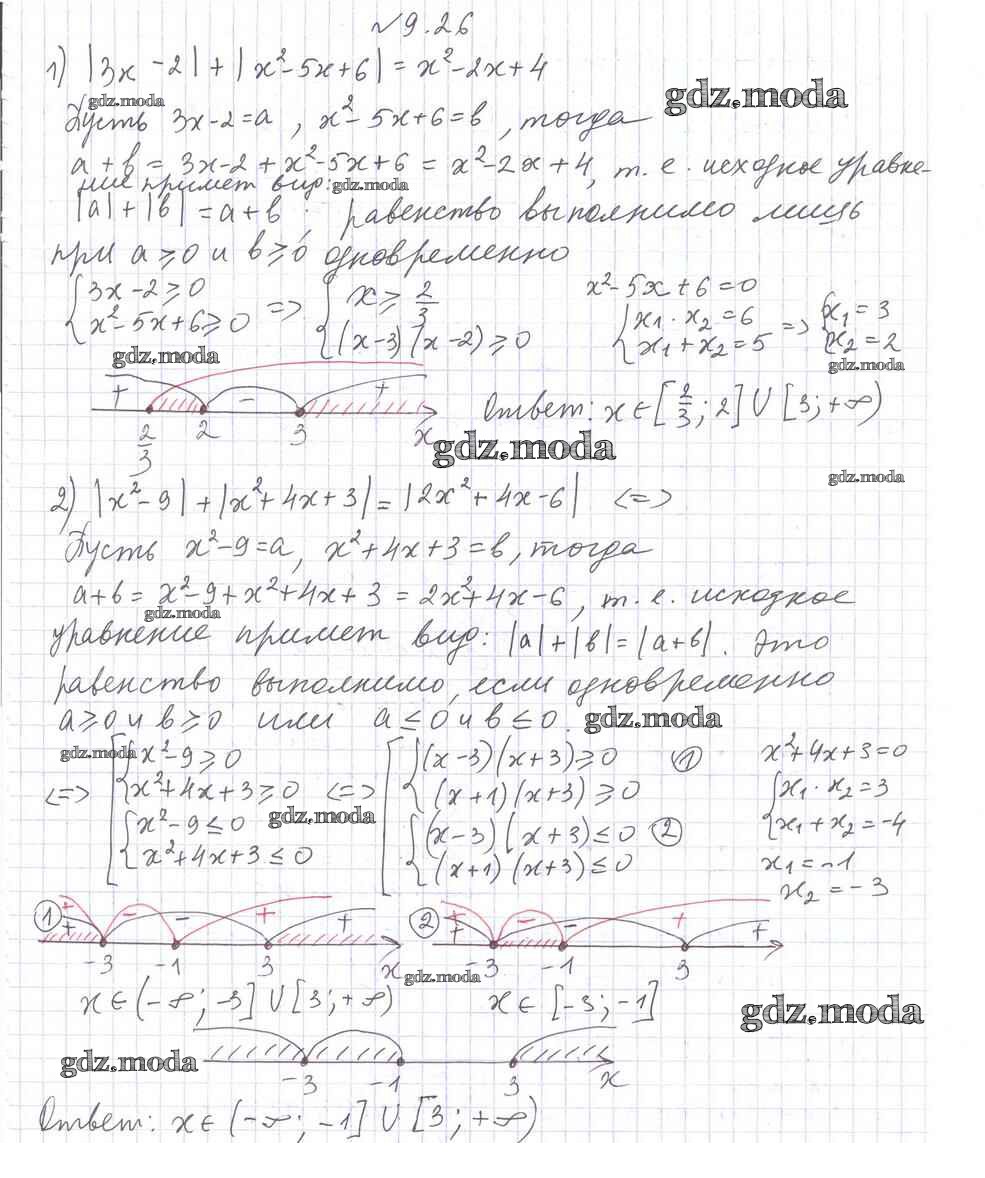 № 9.26
1) |3x - 2| + |x² - 5x + 6| = x² - 2x + 4
gdz.moda
gdz.moda
Пусть 3x - 2 = a, x² - 5x + 6 = b, тогда
a + b = 3x - 2 + x² - 5x + 6 = x² - 2x + 4, т. е. исходное уравне-
ние примет вид: gdz.moda
|a| + |b| = a + b ; равенство выполнимо лишь
при a ≥ 0 и b ≥ 0 одновременно
{ 3x - 2 ≥ 0 => { x ≥ 2/3 x² - 5x + 6 = 0
{ x² - 5x + 6 ≥ 0 { (x - 3)(x - 2) ≥ 0 { x₁ · x₂ = 6 => { x₁ = 3
{ x₁ + x₂ = 5 { x₂ = 2
gdz.moda
gdz.moda
+ - +
2/3 2 3 x
Ответ: x ∈ [2/3; 2] ∪ [3; +∞)
gdz.moda
gdz.moda
2) |x² - 9| + |x² + 4x + 3| = |2x² + 4x - 6| <=>
Пусть x² - 9 = a, x² + 4x + 3 = b, тогда
a + b = x² - 9 + x² + 4x + 3 = 2x² + 4x - 6, т. е. исходное
gdz.moda
уравнение примет вид: |a| + |b| = |a + b|. Это
равенство выполнимо, если одновременно
a ≥ 0 и b ≥ 0 или a ≤ 0 и b ≤ 0. gdz.moda
gdz.moda
[ { x² - 9 ≥ 0 [ { (x - 3)(x + 3) ≥ 0 ① x² + 4x + 3 = 0
<=> { x² + 4x + 3 ≥ 0 <=> { (x + 1)(x + 3) ≥ 0 { x₁ · x₂ = 3
{ x² - 9 ≤ 0 gdz.moda { (x - 3)(x + 3) ≤ 0 ② { x₁ + x₂ = -4
{ x² + 4x + 3 ≤ 0 { (x + 1)(x + 3) ≤ 0 x₁ = -1
x₂ = -3
① + + - - + +
-3 -1 3 x
② + + - - + +
-3 -1 3
gdz.moda
x ∈ (-∞; -3] ∪ [3; +∞) x ∈ [-3; -1]
gdz.moda
gdz.moda
-3 -1 3 x
Ответ: x ∈ (-∞; -1] ∪ [3; +∞)